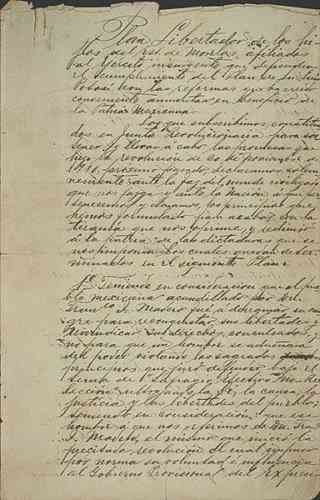 Plan Libertador de los hi-
jos del Estado de Morelos, afiliados
al Ejército insurgente que defiende
el cumplimiento del Plan de San Luis
Potosí, con las reformas que ha creido
conveniente aumentar en beneficio de
la Patria Mexicana.
Los que subscribimos, constitui-
dos en Junta Revolucionaria para sos-
tener y llevar a cabo las promesas que
hizo la revolución de 20 de Noviembre de
1910 próximo pasado, declaramos solem-
nemente ante la faz del mundo civilizado
que nos juzga y ante la Nación a que per-
tenecemos y amamos, los principios que
hemos formulado para acabar con la
tiranía que nos oprime y redimir
a la patria de las dictaduras que se
nos imponen las cuales quedan deter-
minadas en el siguiente Plan:
1º Teniendo en consideración que el pue-
blo mexicano acaudillado por Don
Franco. I. Madero fué a derramar su san-
gre para reconquistar sus libertades y
reivindicar sus derechos conculcados, y
no para que un hombre se adueñara
del poder violando los sagrados
principios que juró defender bajo el
lema de "Sufragio Efectivo" "No Ree-
lección" ultrajando la fé, la causa, la
justicia y las libertades del pueblo;
teniendo en consideración: que ese
hombre a que nos referimos es Don Fran
I. Madero, el mismo que inició la
precitada revolución el cual impuso
por norma su voluntad e influencia
al Gobierno Provisional del Ex Presi-